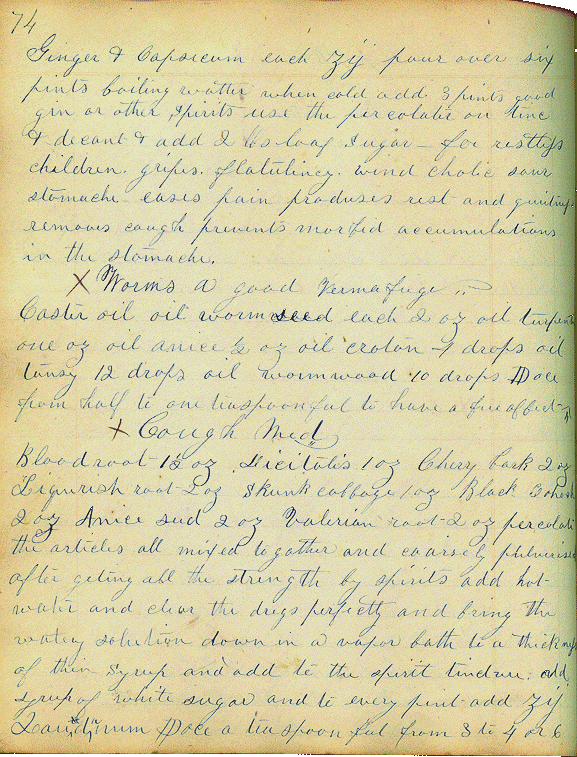 74
Ginger & Capsicum each ʒij pour over six
pints boiling watter when cold add 3 pints good
gin or other spirits use the percolater on time
& decant & add 2 lbs loaf sugar - for restless
children. gripes. flatulincy. wind cholic sour
stomache eases pain produses rest and
removes cough prevents morbid accumulations
in the stomache.
X Worms a good Vermafuge
Caster oil oil wormseed each 2 oz oil turpent
one oz oil anice ½ oz oil croton 4 drops oil
tansy 12 drops oil wormwood 10 drops Doce
from half to one teaspoonful to have a free affect
+ Cough Med
Bloodroot 1½ oz 1 oz Chery bark 2 oz
root 2 oz Skunk cabbage 1 oz Black
2 oz Anice sud 2 oz Valerian root 2 oz percolate
the articles all mixed togather and coarsely pulverised
after geting all the strength by spirits add hot
water and clear the dregs perfectly and bring the
watery solution down in a vapor bath to a thick
of thin syrup and add to the spirit tincture. add
syrup of white sugar and to every pint add ʒij
Laudnum Doce a teaspoonful from 3 to 4 or 6